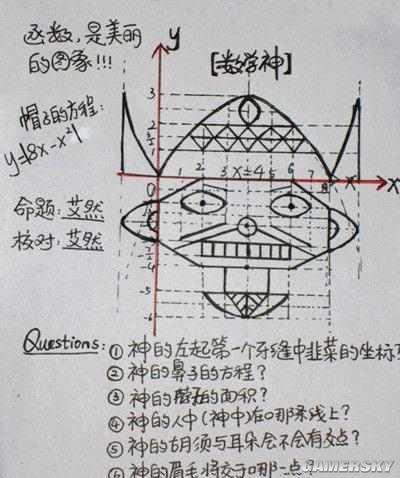 函数,是美丽
的图象!!!
[数学神]
帽子的方程:
y=|8x-x²|
命题:艾然
核对:艾然
y
x
3
2
1
0
1 2 3 x=4 5 6 7 8 x
-4
-5
-6
Questions: ① 神的左起第一个牙缝中韭菜的坐标
② 神的鼻子的方程?
③ 神的的面积?
④ 神的人中(神中)在哪条线上?
⑤ 神的胡须与耳朵会不会有交点?
⑥ 神的眉毛将交于哪一点?
GAMERSKY